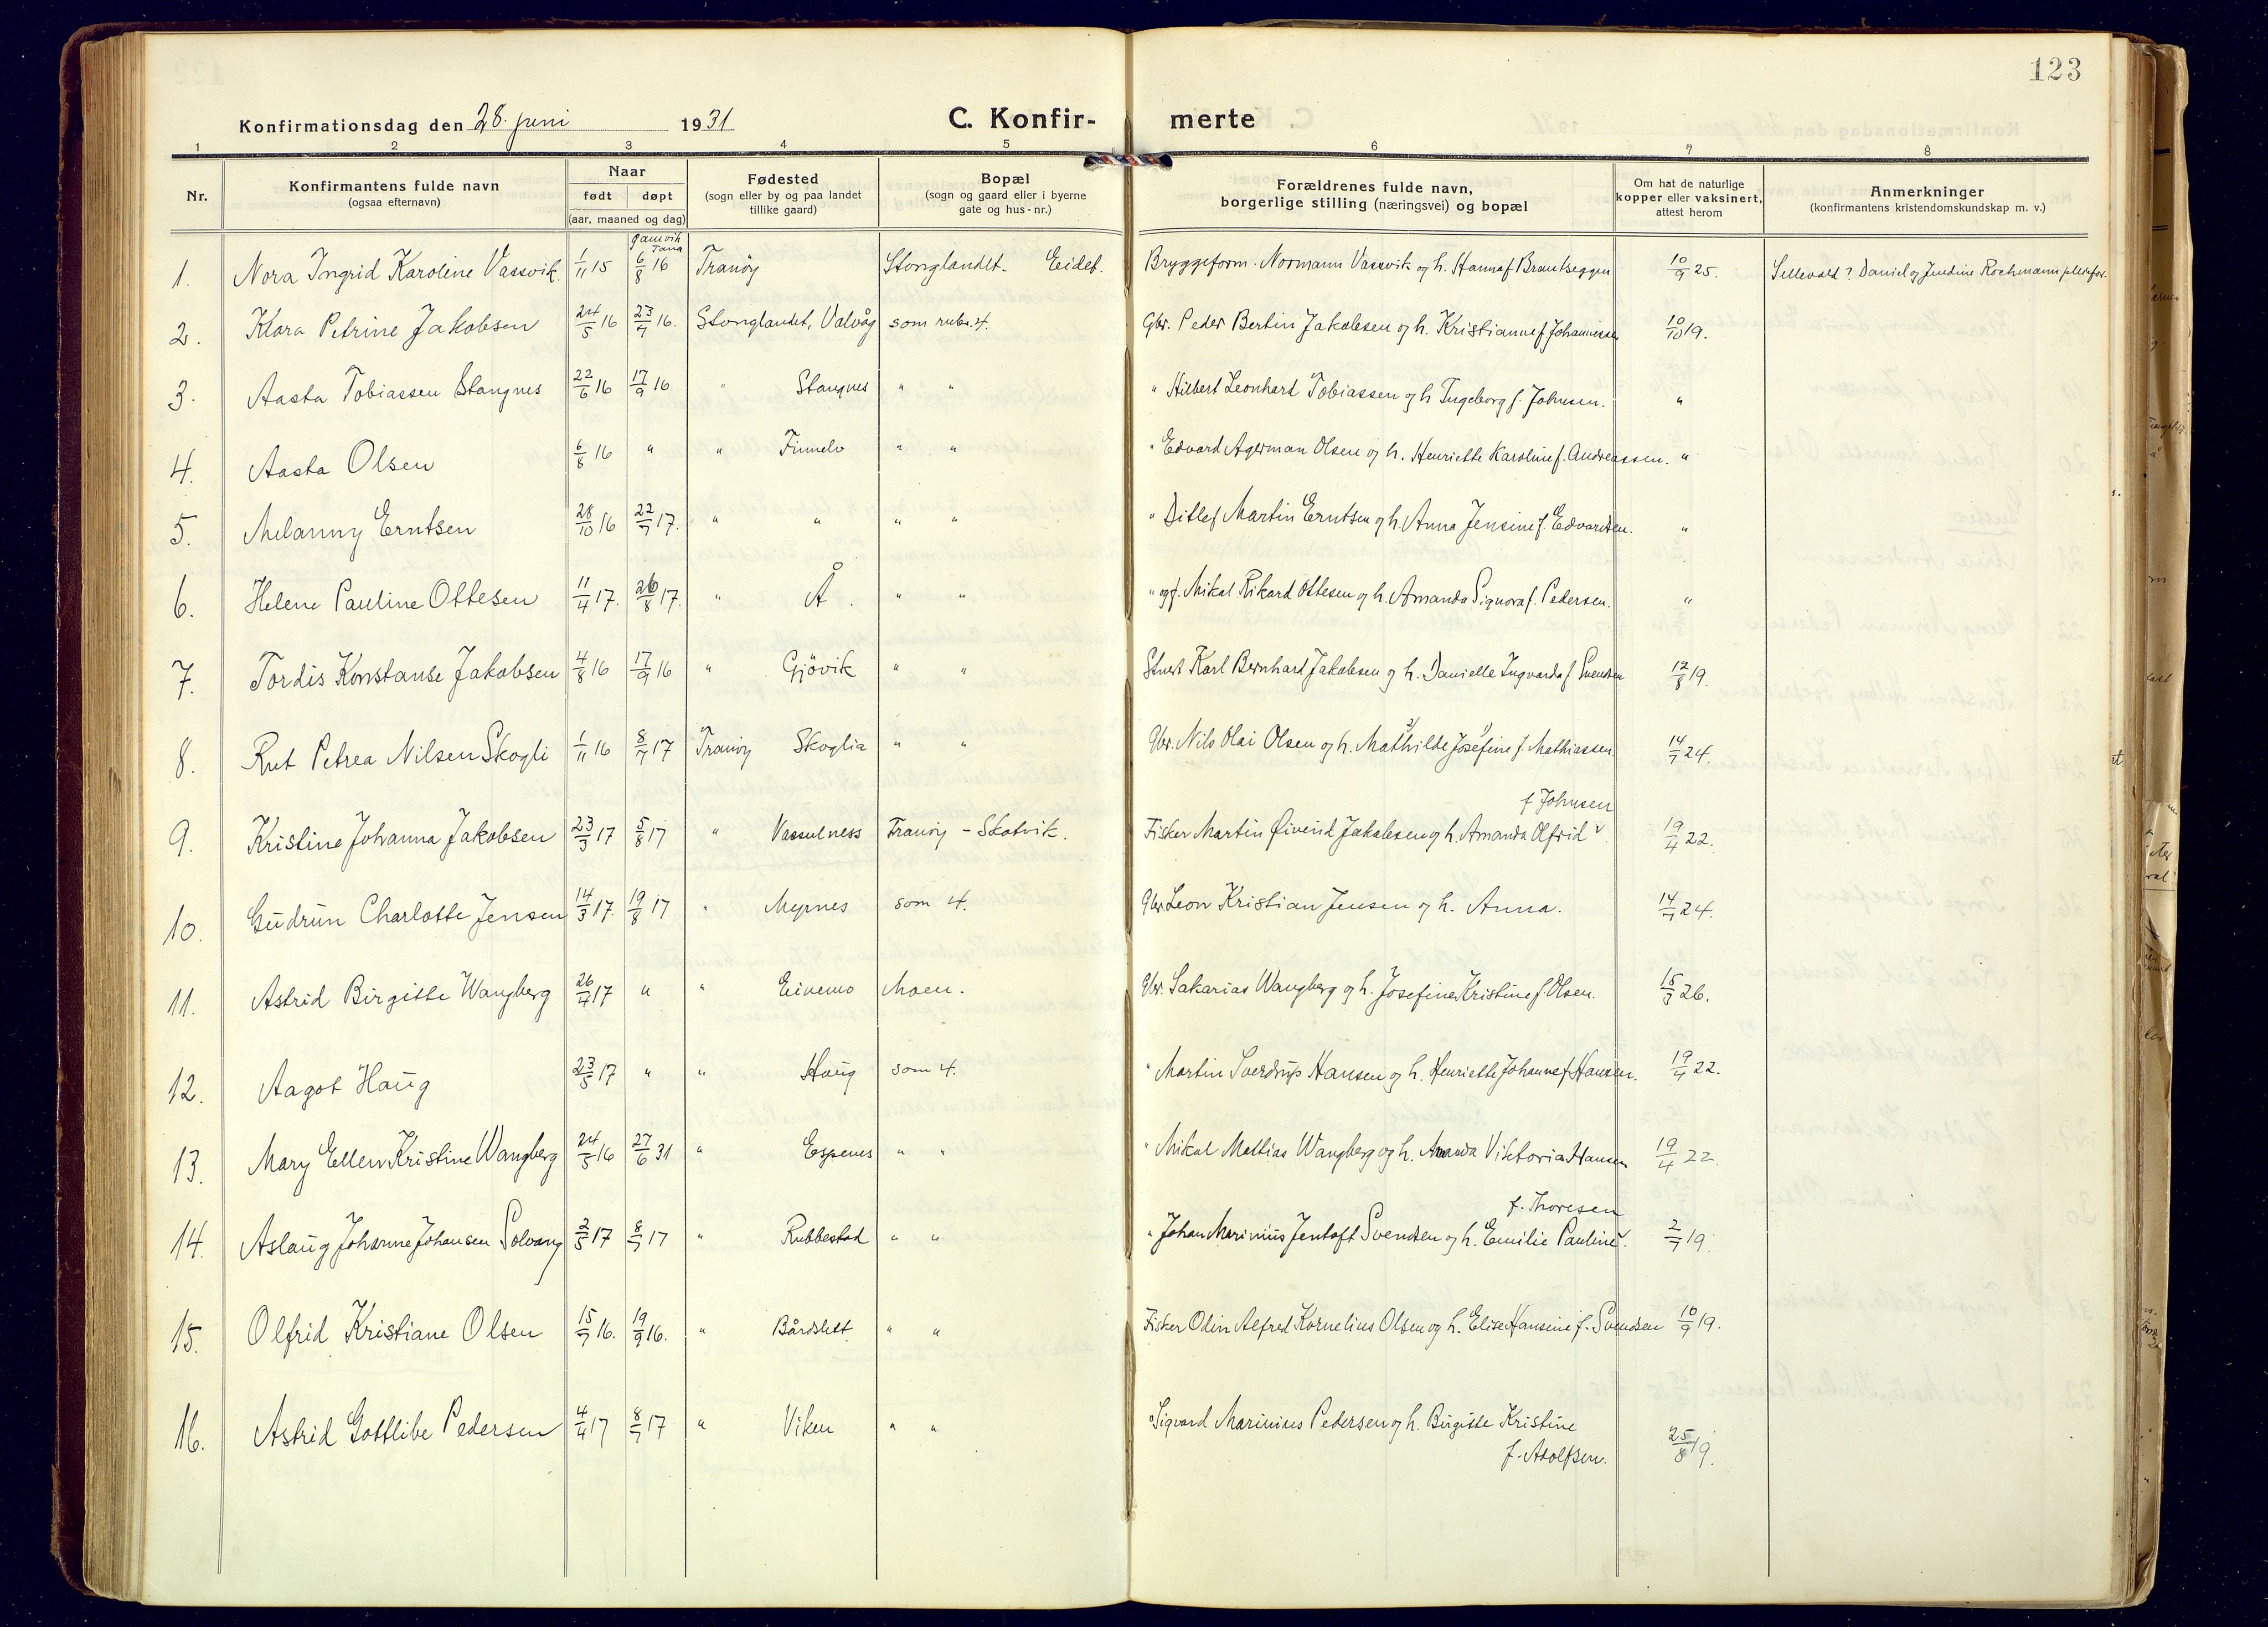 123
Konfirmationsdag den 28. juni 1931
C. Konfir- merte
1 2 3 4 5 6 7 8
Nr.
Konfirmantens fulde navn
(ogsaa efternavn)
Naar
født døpt
(aar, maaned og dag)
Fødested
(sogn eller by og paa landet
tillike gaard)
Bopæl
(sogn og gaard eller i byerne
gate og hus-nr.)
Forældrenes fulde navn,
borgerlige stilling (næringsvei) og bopæl
Om hat de naturlige
kopper eller vaksinert,
attest herom
Anmerkninger
(konfirmantens kristendomskundskap m. v.)
Gamvik
Tana
1. Nora Ingrid Karoline Vassvik. 1/11 15 6/8 16 Tranöy Stonglandet. Eidet. Bryggeform. Normann Vassvik og h. Hanna f Brantseggen 10/9 25. Sellevold? Daniel og Jendine Rochmann pleiefor.
2. Klara Petrine Jakobsen 24/5 16 23/7 16. Stonglandet, Valvåg som rubr. 4. Gbr. Peder Bertin Jakobsen og h. Kristianne f Johannessen 10/10 19.
3. Aasta Tobiassen Stangnes 22/6 16 17/9 16 " Stangnes " " " Hilbert Leonhard Tobiassen og h Ingeborg f. Johnsen. "
4. Aasta Olsen 6/8 16 " " Finnelv " " " Edvard Agerman Olsen og h. Henriette Karoline f. Andreassen. "
5. Melanny Erntsen 28/10 16 22/7 17. " " " " " Ditlef Martin Erntsen og h. Anna Jensine f. Edvardsen. "
6. Helene Pauline Ottesen 11/4 17. 26/8 17. " Å. " " " og f. Mikal Rikard Ottesen og h. Amanda Signora f. Pedersen. "
7. Tordis Konstanse Jakobsen 4/8 16 17/9 16 " Gjövik " " Karl Bernhard Jakobsen og h. Danielle Ingvarda f Svendsen 12/8 19.
8. Rut Petrea Nilsen Skogli 1/11 16 8/7 17 Tranöy Skoglia " " Gbr. Nils Olai Olsen og h. Mathilde Josefine f. Mathiassen 14/7 24.
f Johnsen
9. Kristine Johanna Jakobsen 23/3 17 5/8 17 " Vasselness Tranöy - Skatvik. Fisker Martin Øivind Jakobsen og h. Amanda Olfrid v 19/4 22.
10. Gudrun Charlotte Jensen 14/3 17. 19/8 17 " Myrnes som 4. Gbr. Leon Kristian Jensen og h. Anna. 14/7 24.
11. Astrid Birgitte Wangberg 26/4 17 " " Einemo Moen. Gbr. Sakarias Wangberg og h. Josefine Kristine f. Olsen. 15/3 26.
12. Aagot Haug 23/5 17 " " Haug som 4. " Martin Sverdrup Hansen og h. Henriette Johanne f Hansen. 19/4 22.
13. Mary Ellen Kristine Wangberg 24/5 16 27/6 31 " Espenes " " " Mikal Mattias Wangberg og h. Amanda Viktoria Hansen 19/4 22.
f. Thoresen
14. Aslaug Johanne Johansen Solvang 2/5 17 8/7 17 " Rubbestad " " " Johan Marinius Jentoft Svendsen og h. Emilie Pauline v. 2/7 19.
15. Olfrid Kristiane Olsen 15/7 16. 19/9 16. " Bårdslett " " Fisker Odin Alfred Kornelius Olsen og h. Elise Hansine f. Svendsen 10/9 19.
16. Astrid Gottlibe Pedersen 4/4 17 8/7 17 " Viken " " " Sigvard Marinius Pedersen og h. Birgitte Kristine
f. Adolfsen. 25/8 19.